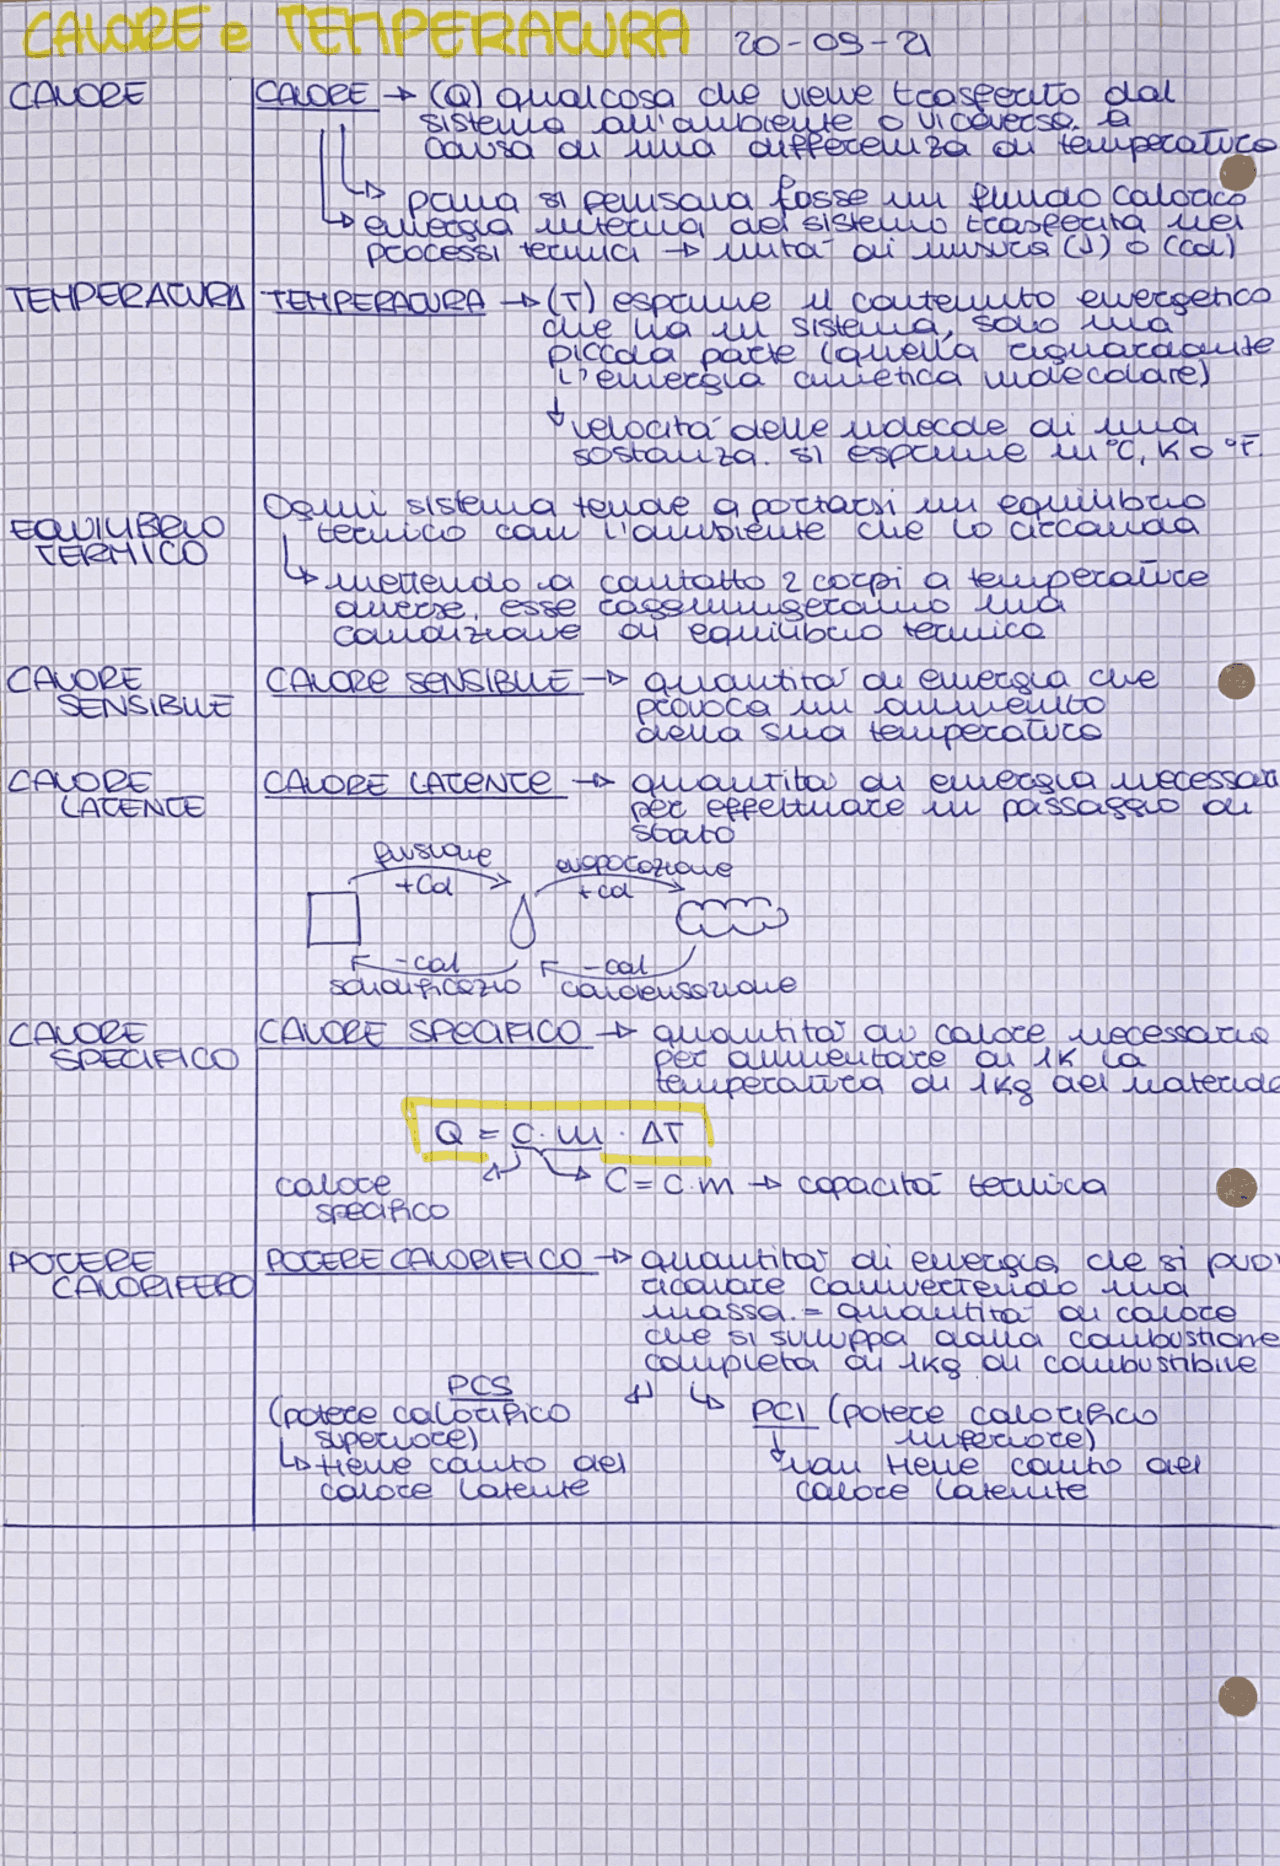 CALORE e TEMPERATURA 20-09-21
CALORE
CALORE → (Q) qualcosa che viene trasferito dal
sistema all'ambiente o viceversa, a
causa di una differenza di temperatura
↳ prima si pensava fosse un fluido calorico
↳ energia interna del sistema trasferita nei
processi termici → unità di misura (J) o (cal)
TEMPERATURA
TEMPERATURA → (T) esprime il contenuto energetico
che ha un sistema, solo una
piccola parte (quella riguardante
l'energia cinetica molecolare)
↓ velocità delle molecole di una
sostanza. si esprime in °C, K o °F.
EQUILIBRIO
TERMICO
Ogni sistema tende a portarsi in equilibrio
termico con l'ambiente che lo circonda
↳ mettendo a contatto 2 corpi a temperature
diverse, esse raggiungeranno una
condizione di equilibrio termico
CALORE
SENSIBILE
CALORE SENSIBILE → quantità di energia che
provoca un aumento
della sua temperatura
CALORE
LATENTE
CALORE LATENTE → quantità di energia necessari
per effettuare un passaggio di
stato
fusione evaporazione
+cal +cal
-cal -cal
solidificazio condensazione
CALORE
SPECIFICO
CALORE SPECIFICO → quantità di calore necessario
per aumentare di 1K la
temperatura di 1kg del materiale
Q = c · m · ΔT
calore
specifico
C = c · m → capacità termica
POTERE
CALORIFERO
POTERE CALORIFICO → quantità di energia che si può
ricavare convertendo una
massa. = quantità di calore
che si sviluppa dalla combustione
completa di 1kg di combustibile
PCS
(potere calorifico
superiore)
↳ tiene conto del
calore latente
PCI (potere calorifico
inferiore)
↓ non tiene conto del
calore latente